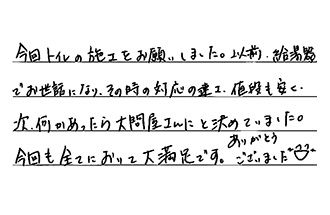 今回トイレの施工をお願いしました。以前、給湯器
でお世話になり、その時の対応の速さ、値段も安く、
次、何かあったら大問屋さんにと決めていました。
今回も全てにおいて大満足です。
ありがとう
ございました